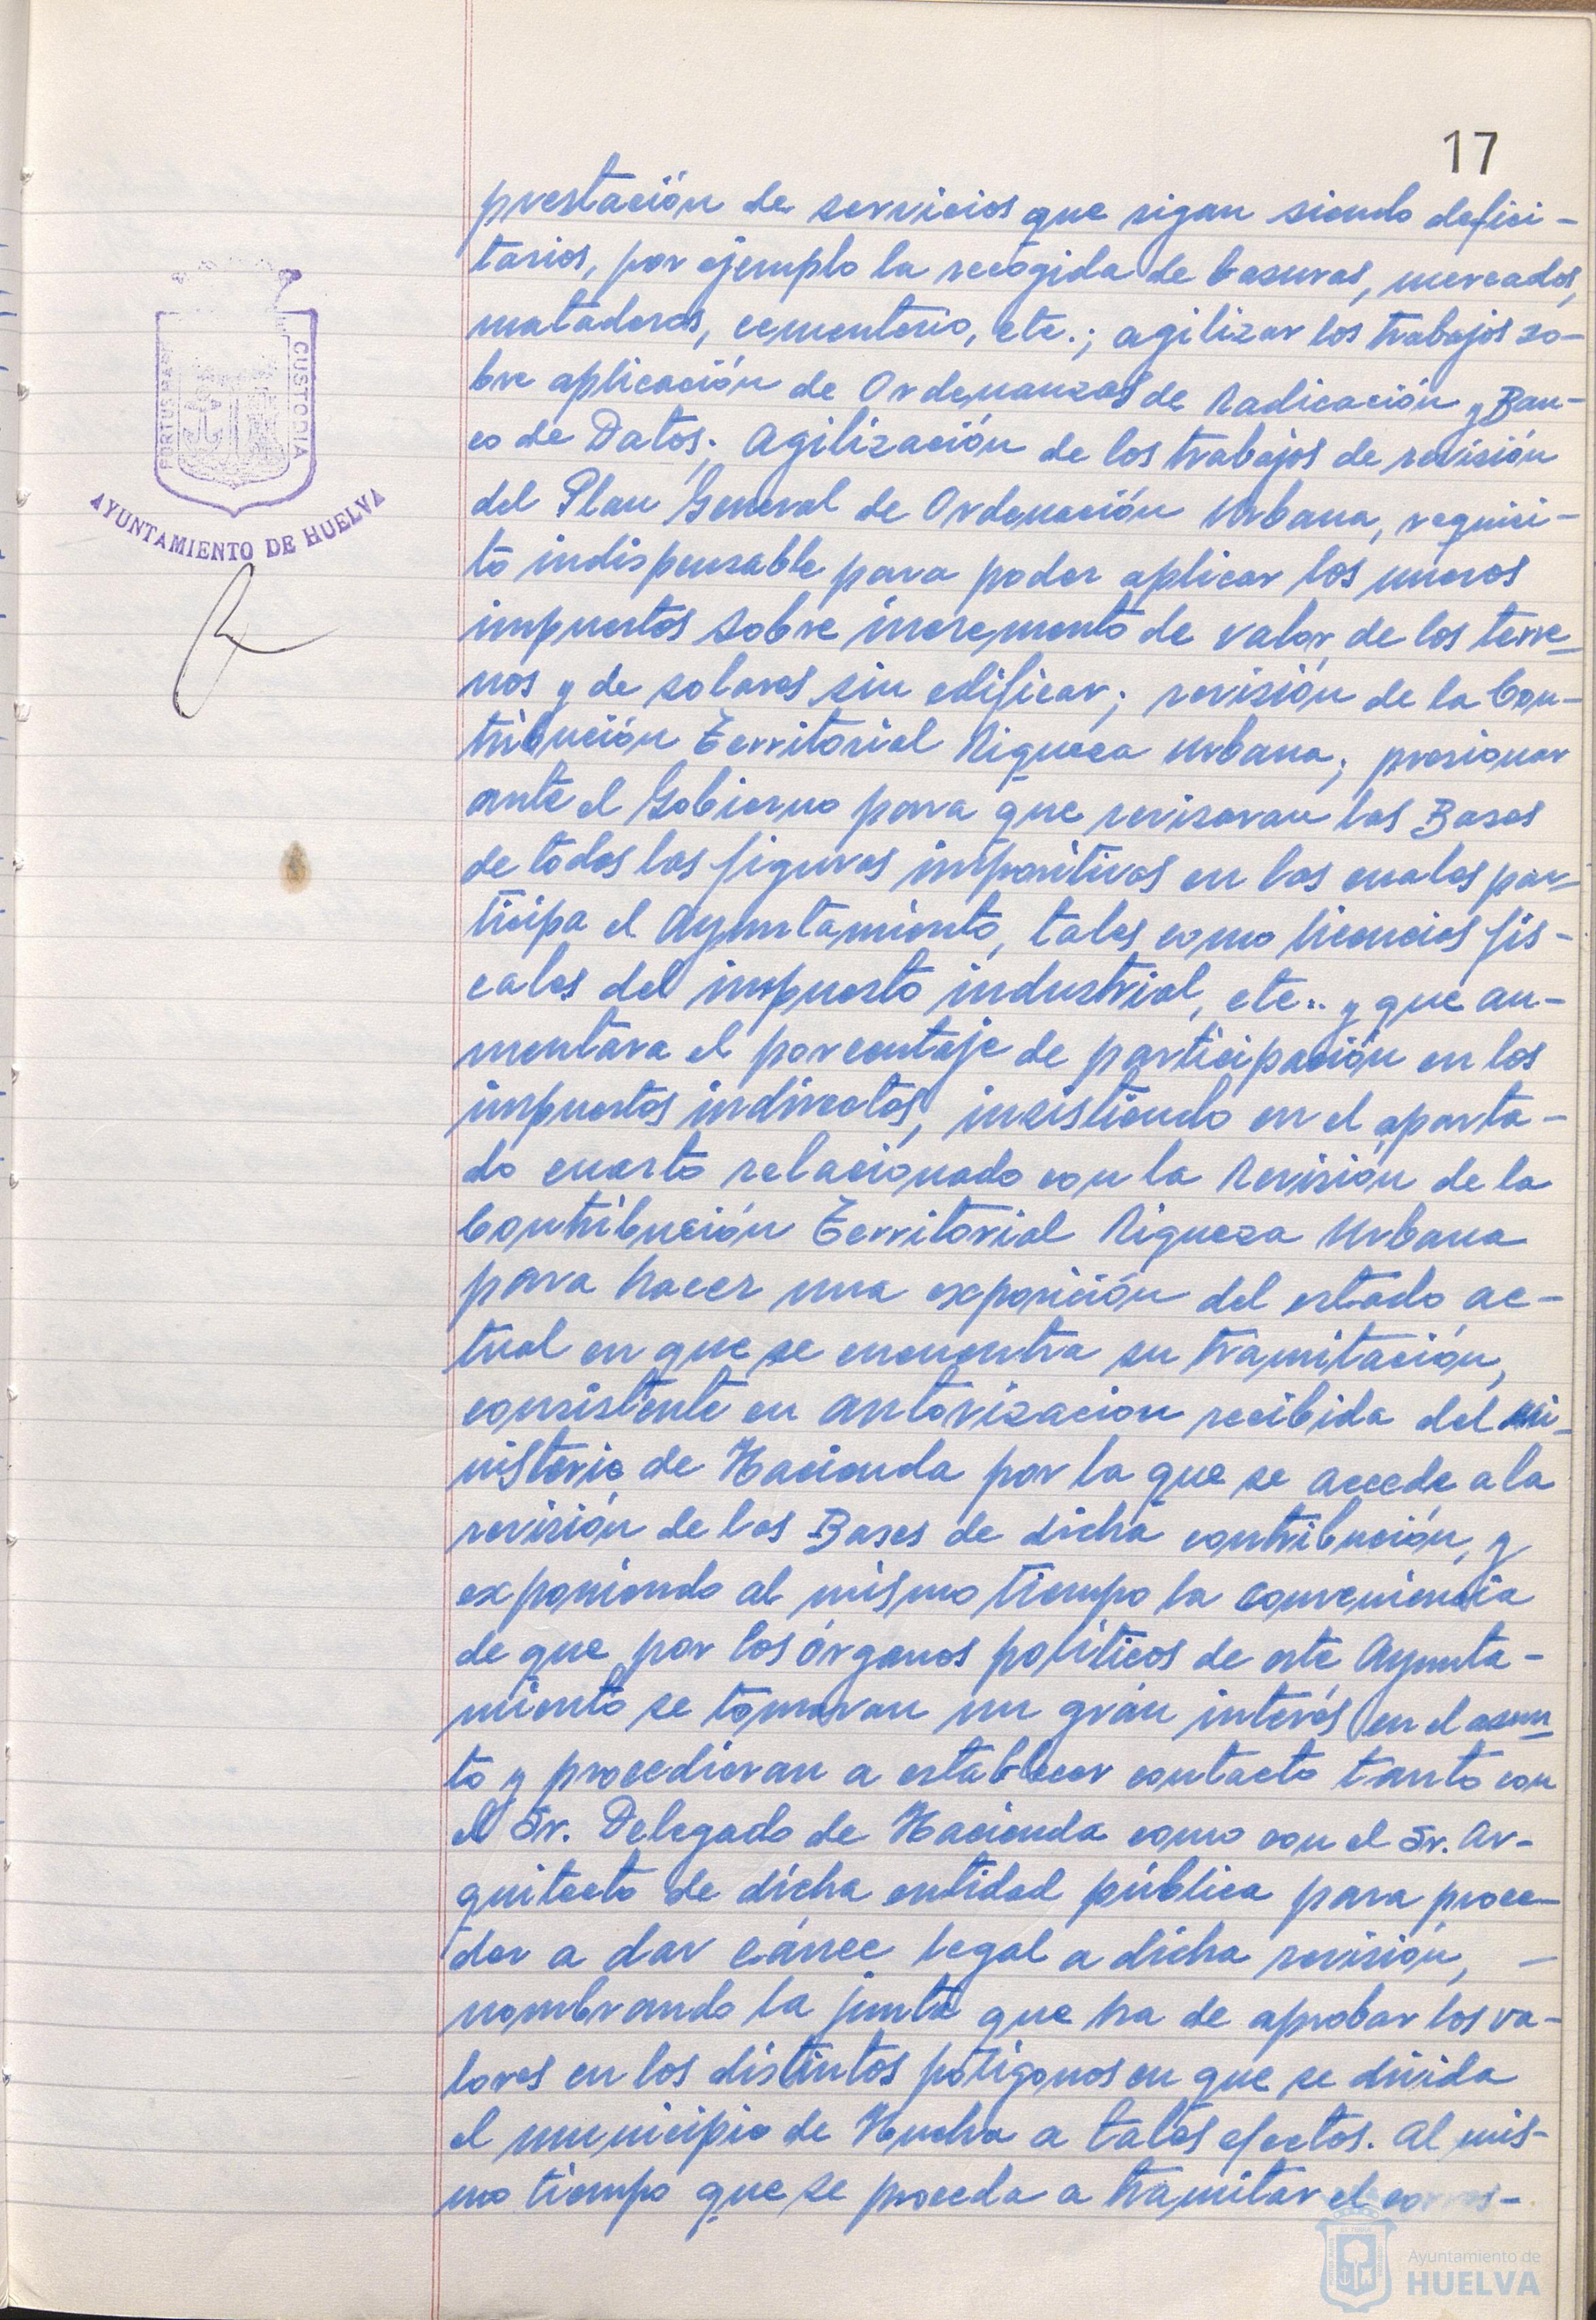 17
prestación de servicios que sigan siendo defici-
tarios, por ejemplo la recogida de basuras, mercados,
mataderos, cementerio, etc.; agilizar los trabajos so-
bre aplicación de Ordenanzas de radicación y Ban-
co de Datos; Agilización de los trabajos de revisión
del Plan General de Ordenación Urbana, requisi-
to indispensable para poder aplicar los nuevos
impuestos sobre incremento de valor de los terre-
nos y de solares sin edificar; revisión de la Con-
tribución Territorial Riqueza Urbana; presionar
ante el Gobierno para que revisaran las Bases
de todas las figuras impositivas en las cuales par-
ticipa el Ayuntamiento, tales como licencias fis-
cales del impuesto industrial, etc.. y que au-
mentara el porcentaje de participación en los
impuestos indirectos, insistiendo en el aparta-
do cuarto relacionado con la Revisión de la
Contribución Territorial Riqueza Urbana
para hacer una exposición del estado ac-
tual en que se encuentra su tramitación,
consistente en autorizacion recibida del Mi-
nisterio de Hacienda por la que se accede a la
revisión de las Bases de dicha contribución, y
exponiendo al mismo tiempo la conveniencia
de que por los órganos políticos de este Ayunta-
miento se tomaran un gran interés en el asun-
to y procedieran a establecer contacto tanto con
el Sr. Delegado de Hacienda como con el Sr. Ar-
quitecto de dicha entidad pública para proce-
der a dar cauce legal a dicha revisión, -
nombrando la junta que ha de aprobar los va-
lores en los distintos polígonos en que se divida
el municipio de Huelva a tales efectos. Al mis-
mo tiempo que se proceda a tramitar el corres-
PORTUS MARIS
CUSTODIA
AYUNTAMIENTO DE HUELVA
Ayuntamiento de
HUELVA